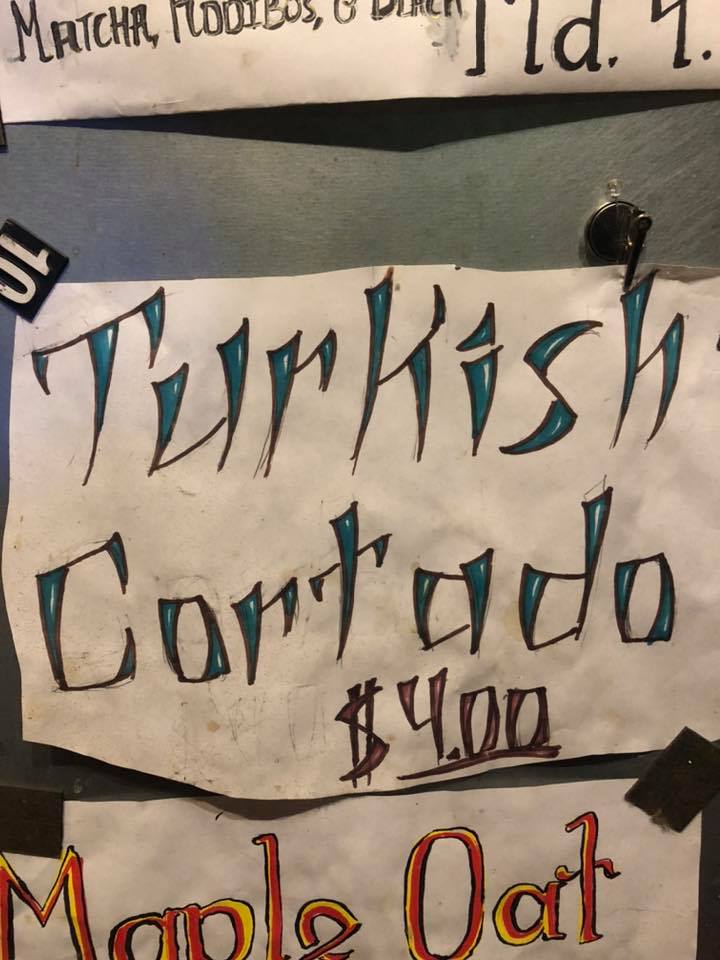 MATCHA, ROOIBOS, & BLACK
Md. 4.
10
Turkish
Cortado
$4.00
Maple Oat